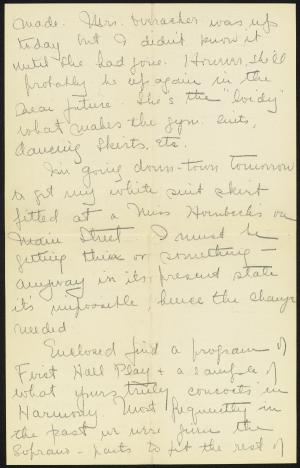 made. Mrs. was up
today but I didn't know it
until she had gone. However, she'll
probably be up again in the
near future. She's the "loidy"
what makes the gym. suits,
dancing skirts, etc.
I'm going down-town tomorrow
to get my white suit skirt
fitted at a Miss Hornbecks on
Main Street. I must be
getting thick or something —
anyway in its present state
it's impossible, hence the change
needed.
Enclosed find a program of
First Hall Play & a sample of
what yours truly concocts in
Harmony. Most frequently in
the past we were given the
Soprano - parts to fit the rest of